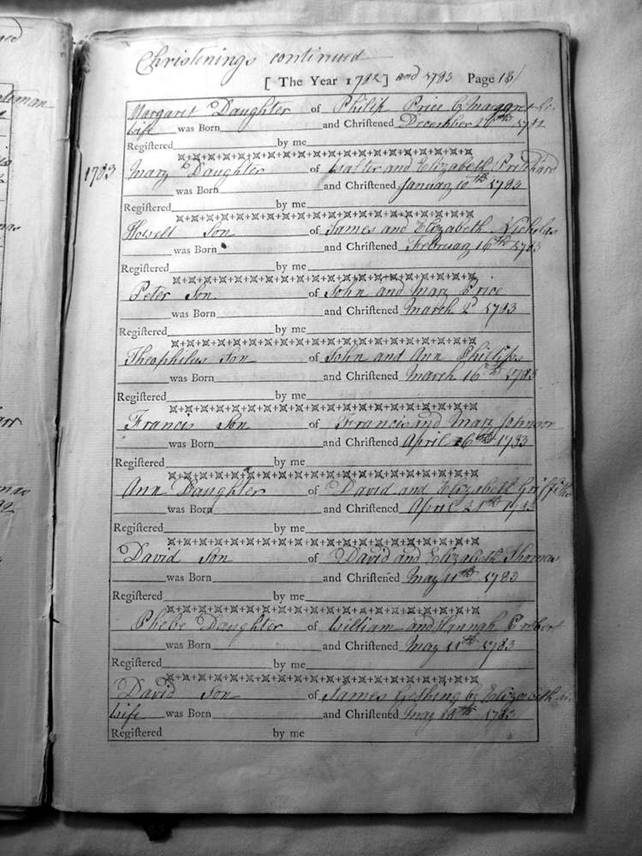 Christenings continued
[ The Year 1782 ] and 1783 Page 13
Margaret Daughter of Philip Price by Margaret his
Wife was Born and Christened December 16th 1782
Registered by me
1783
Mary Daughter of Walter and Elizabeth Pritchard
was Born and Christened January 10th 1783
Registered by me
Howell Son of James and Elizabeth Nicholas
was Born and Christened February 16th 1783
Registered by me
Peter Son of John and Mary Price
was Born and Christened March 2d 1783
Registered by me
Theophilus Son of John and Ann Phillips
was Born and Christened March 16th 1783
Registered by me
Francis Son of Francis and Mary Johnson
was Born and Christened April 6th 1783
Registered by me
Ann Daughter of David and Elizabeth Griffiths
was Born and Christened April 21st 1783
Registered by me
David Son of David and Elizabeth Thomas
was Born and Christened May 11th 1783
Registered by me
Phebe Daughter of William and Hannah Probert
was Born and Christened May 11th 1783
Registered by me
David Son of James by Elizabeth his
Wife was Born and Christened May 1783
Registered by me